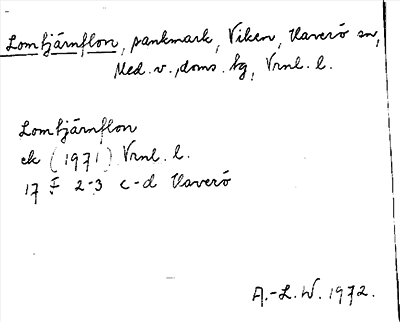 Lomtjärnflon, sankmark, Viken, Haverö sn,
Med. v., doms. hg, Vrnl. l.
Lomtjärnflon
ek (1971) Vrnl. l.
17 F 2-3 c-d Haverö
A.-L. W. 1972.